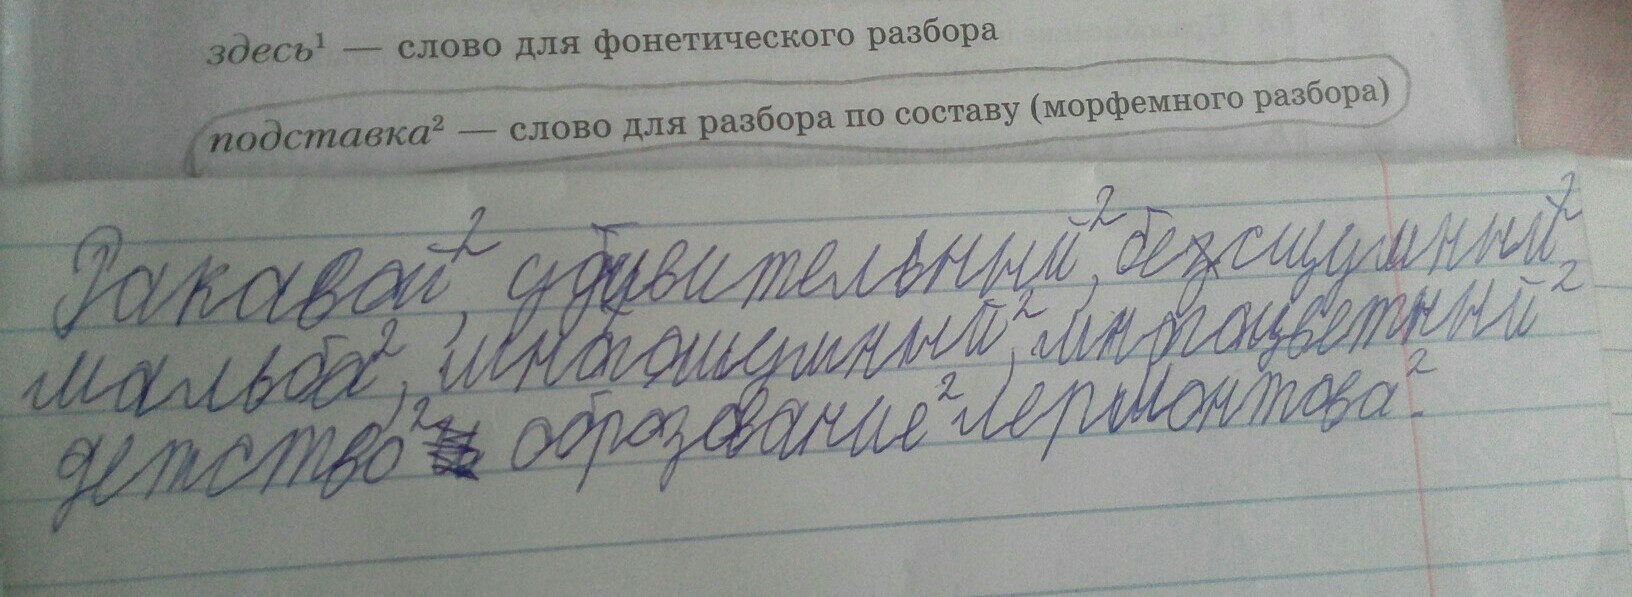 здесь¹ — слово для фонетического разбора
подставка² — слово для разбора по составу (морфемного разбора)
Ракавой², удивительный², безшумный²,
мальба², многошумный², многоцветный²
детство² образование² Лермонтова².